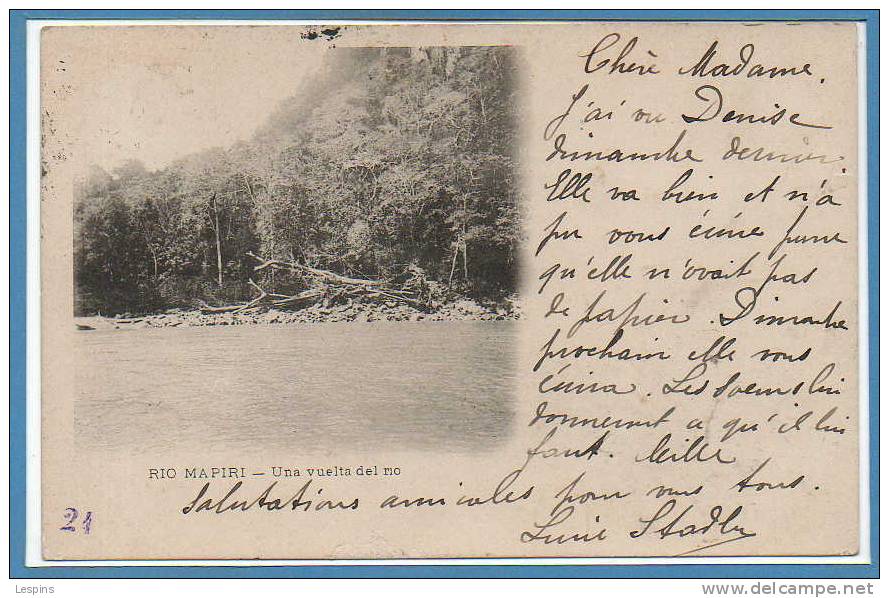 Chère Madame.
J'ai vu Denise
dimanche dernier
Elle va bien et n'a
pu vous écrire parce
qu'elle n'avait pas
de papier. Dimanche
prochain elle vous
écrira. Les Soeurs lui
donneront ce qu'il lui
faut. Mille
Salutations amicales pour vous tous.
Lucie Stadler
RIO MAPIRI — Una vuelta del rio
21
Lespins
www.delcampe.net